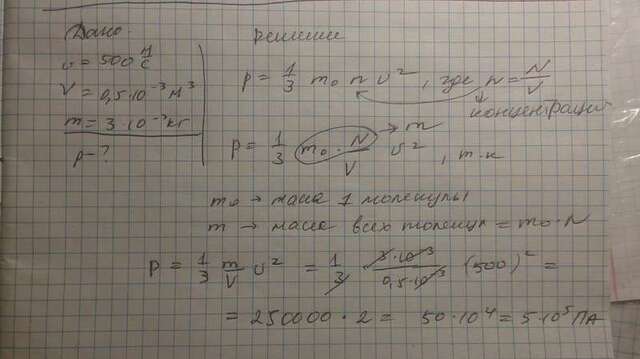 Дано:
υ = 500 м/с
V = 0,5·10⁻³ м³
m = 3·10⁻³ кг
p - ?
Решение
p = 1/3 m₀ n υ², где n = N/V
концентрация
p = 1/3 m₀·N/V υ², т.к → m
m₀ → масса 1 молекулы
m → масса всех молекул = m₀·N
p = 1/3 m/V υ² = 1/3 · 3·10⁻³/0,5·10⁻³ · (500)² =
= 250000·2 = 50·10⁴ = 5·10⁵ ПА